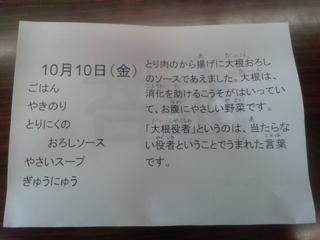 10月10日(金)
ごはん
やきのり
とりにくの
おろしソース
やさいスープ
ぎゅうにゅう
とり肉のから揚げに大根おろし
のソースであえました。大根は、
消化を助けるこうそがはいってい
て、お腹にやさしい野菜です。
「大根役者」というのは、当たらな
い役者ということでうまれた言葉
です。